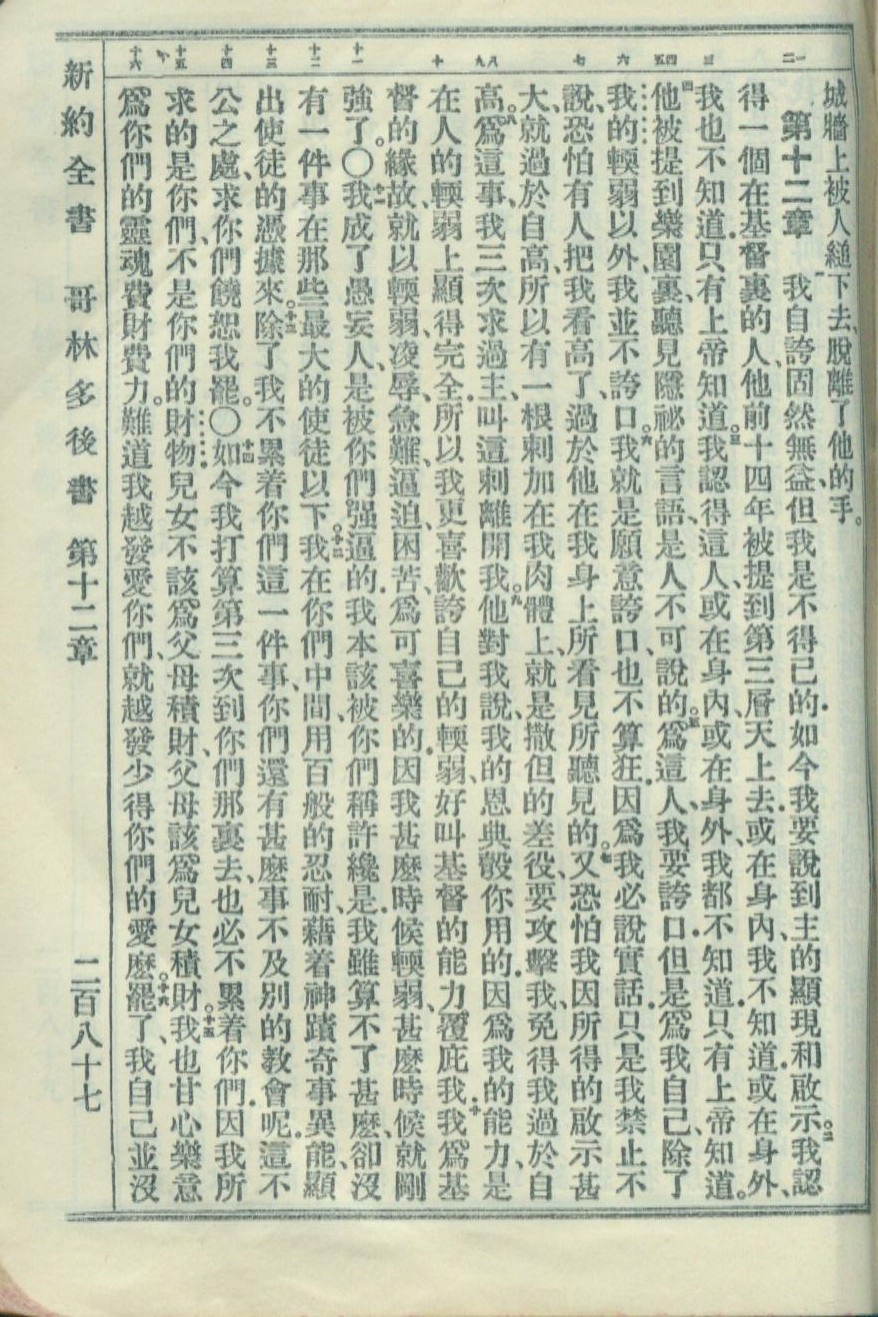 一二
三
四五
六
七
八九
十
十一
十二
十三
十四
十五
十六
城牆上被人縋下去、脫離了他的手。
第十二章 我自誇固然無益、但我是不得已的.如今我要說到主的顯現和啟示。二我認
得一個在基督裏的人、他前十四年被提到第三層天上去.或在身內、我不知道.或在身外、
我也不知道.只有上帝知道。三我認得這人、或在身內、或在身外、我都不知道.只有上帝知道。
四他被提到樂園裏、聽見隱祕的言語、是人不可說的。五爲這人、我要誇口.但是爲我自己、除了
我的輭弱以外、我並不誇口。六我就是願意誇口、也不算狂.因爲我必說實話.只是我禁止不
說、恐怕有人把我看高了、過於他在我身上所看見所聽見的。七又恐怕我因所得的啟示甚
大、就過於自高、所以有一根刺加在我肉體上、就是撒但的差役、要攻擊我、免得我過於自
高。八爲這事、我三次求過主、叫這刺離開我。九他對我說、我的恩典彀你用的.因爲我的能力、是
在人的輭弱上顯得完全.所以我更喜歡誇自己的輭弱、好叫基督的能力、覆庇我.十我爲基
督的緣故、就以輭弱、凌辱、急難、逼迫、困苦、爲可喜樂的.因我甚麼時候輭弱、甚麼時候就剛
強了。〇十一我成了愚妄人、是被你們强逼的.我本該被你們稱許纔是.我雖算不了甚麼、卻沒
有一件事在那些最大的使徒以下。十二我在你們中間、用百般的忍耐、藉着神蹟奇事異能、顯
出使徒的憑據來。十三除了我不累着你們這一件事、你們還有甚麼事不及別的教會呢.這不
公之處、求你們饒恕我罷。〇十四如今我打算第三次到你們那裏去、也必不累着你們.因我所
求的是你們、不是你們的財物.兒女不該爲父母積財、父母該爲兒女積財。十五我也甘心樂意
爲你們的靈魂費財費力。難道我越發愛你們、就越發少得你們的愛麼。十六罷了、我自己並沒
新約全書 哥林多後書 第十二章 二百八十七